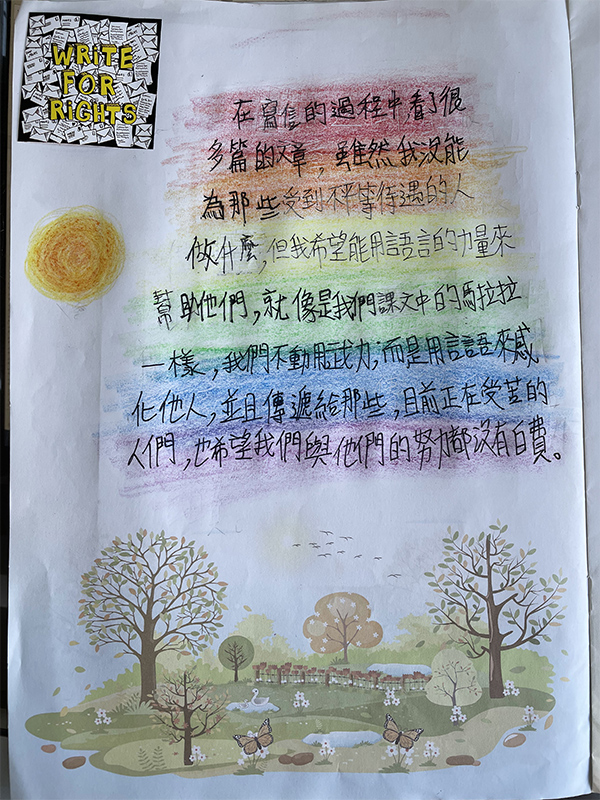 WRITE
FOR
RIGHTS
在寫信的過程中看了很
多篇的文章，雖然我沒能
為那些受到不平等待遇的人
做什麼，但我希望能用語言的力量來
幫助他們，就像是我們課文中的馬拉拉
一樣，我們不動用武力，而是用言語來感
化他人，並且傳遞給那些，目前正在受苦的
人們，也希望我們與他們的努力都沒有白費。